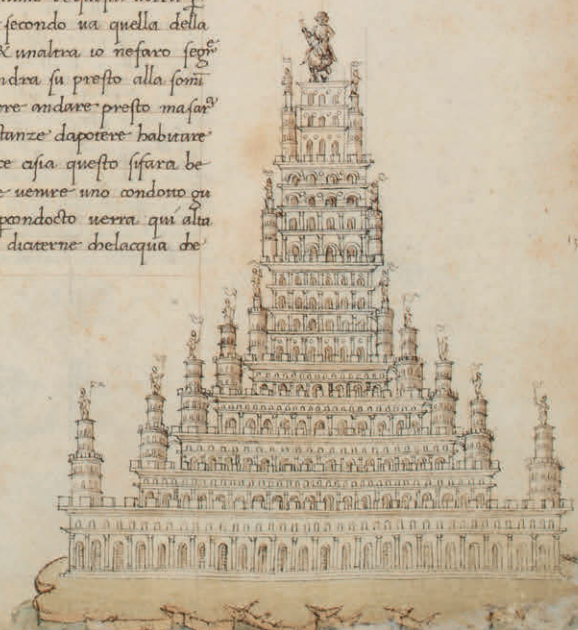 secondo ua quella della
& unaltra io nefaro segrͤ
ndra su presto alla som̄
ere andare presto masarᵃ
tanze dapotere habitare
ce asia questo sifara be
e uenire uno condotto qu
pcondocto uerra qui alta
diciterne chelacqua che